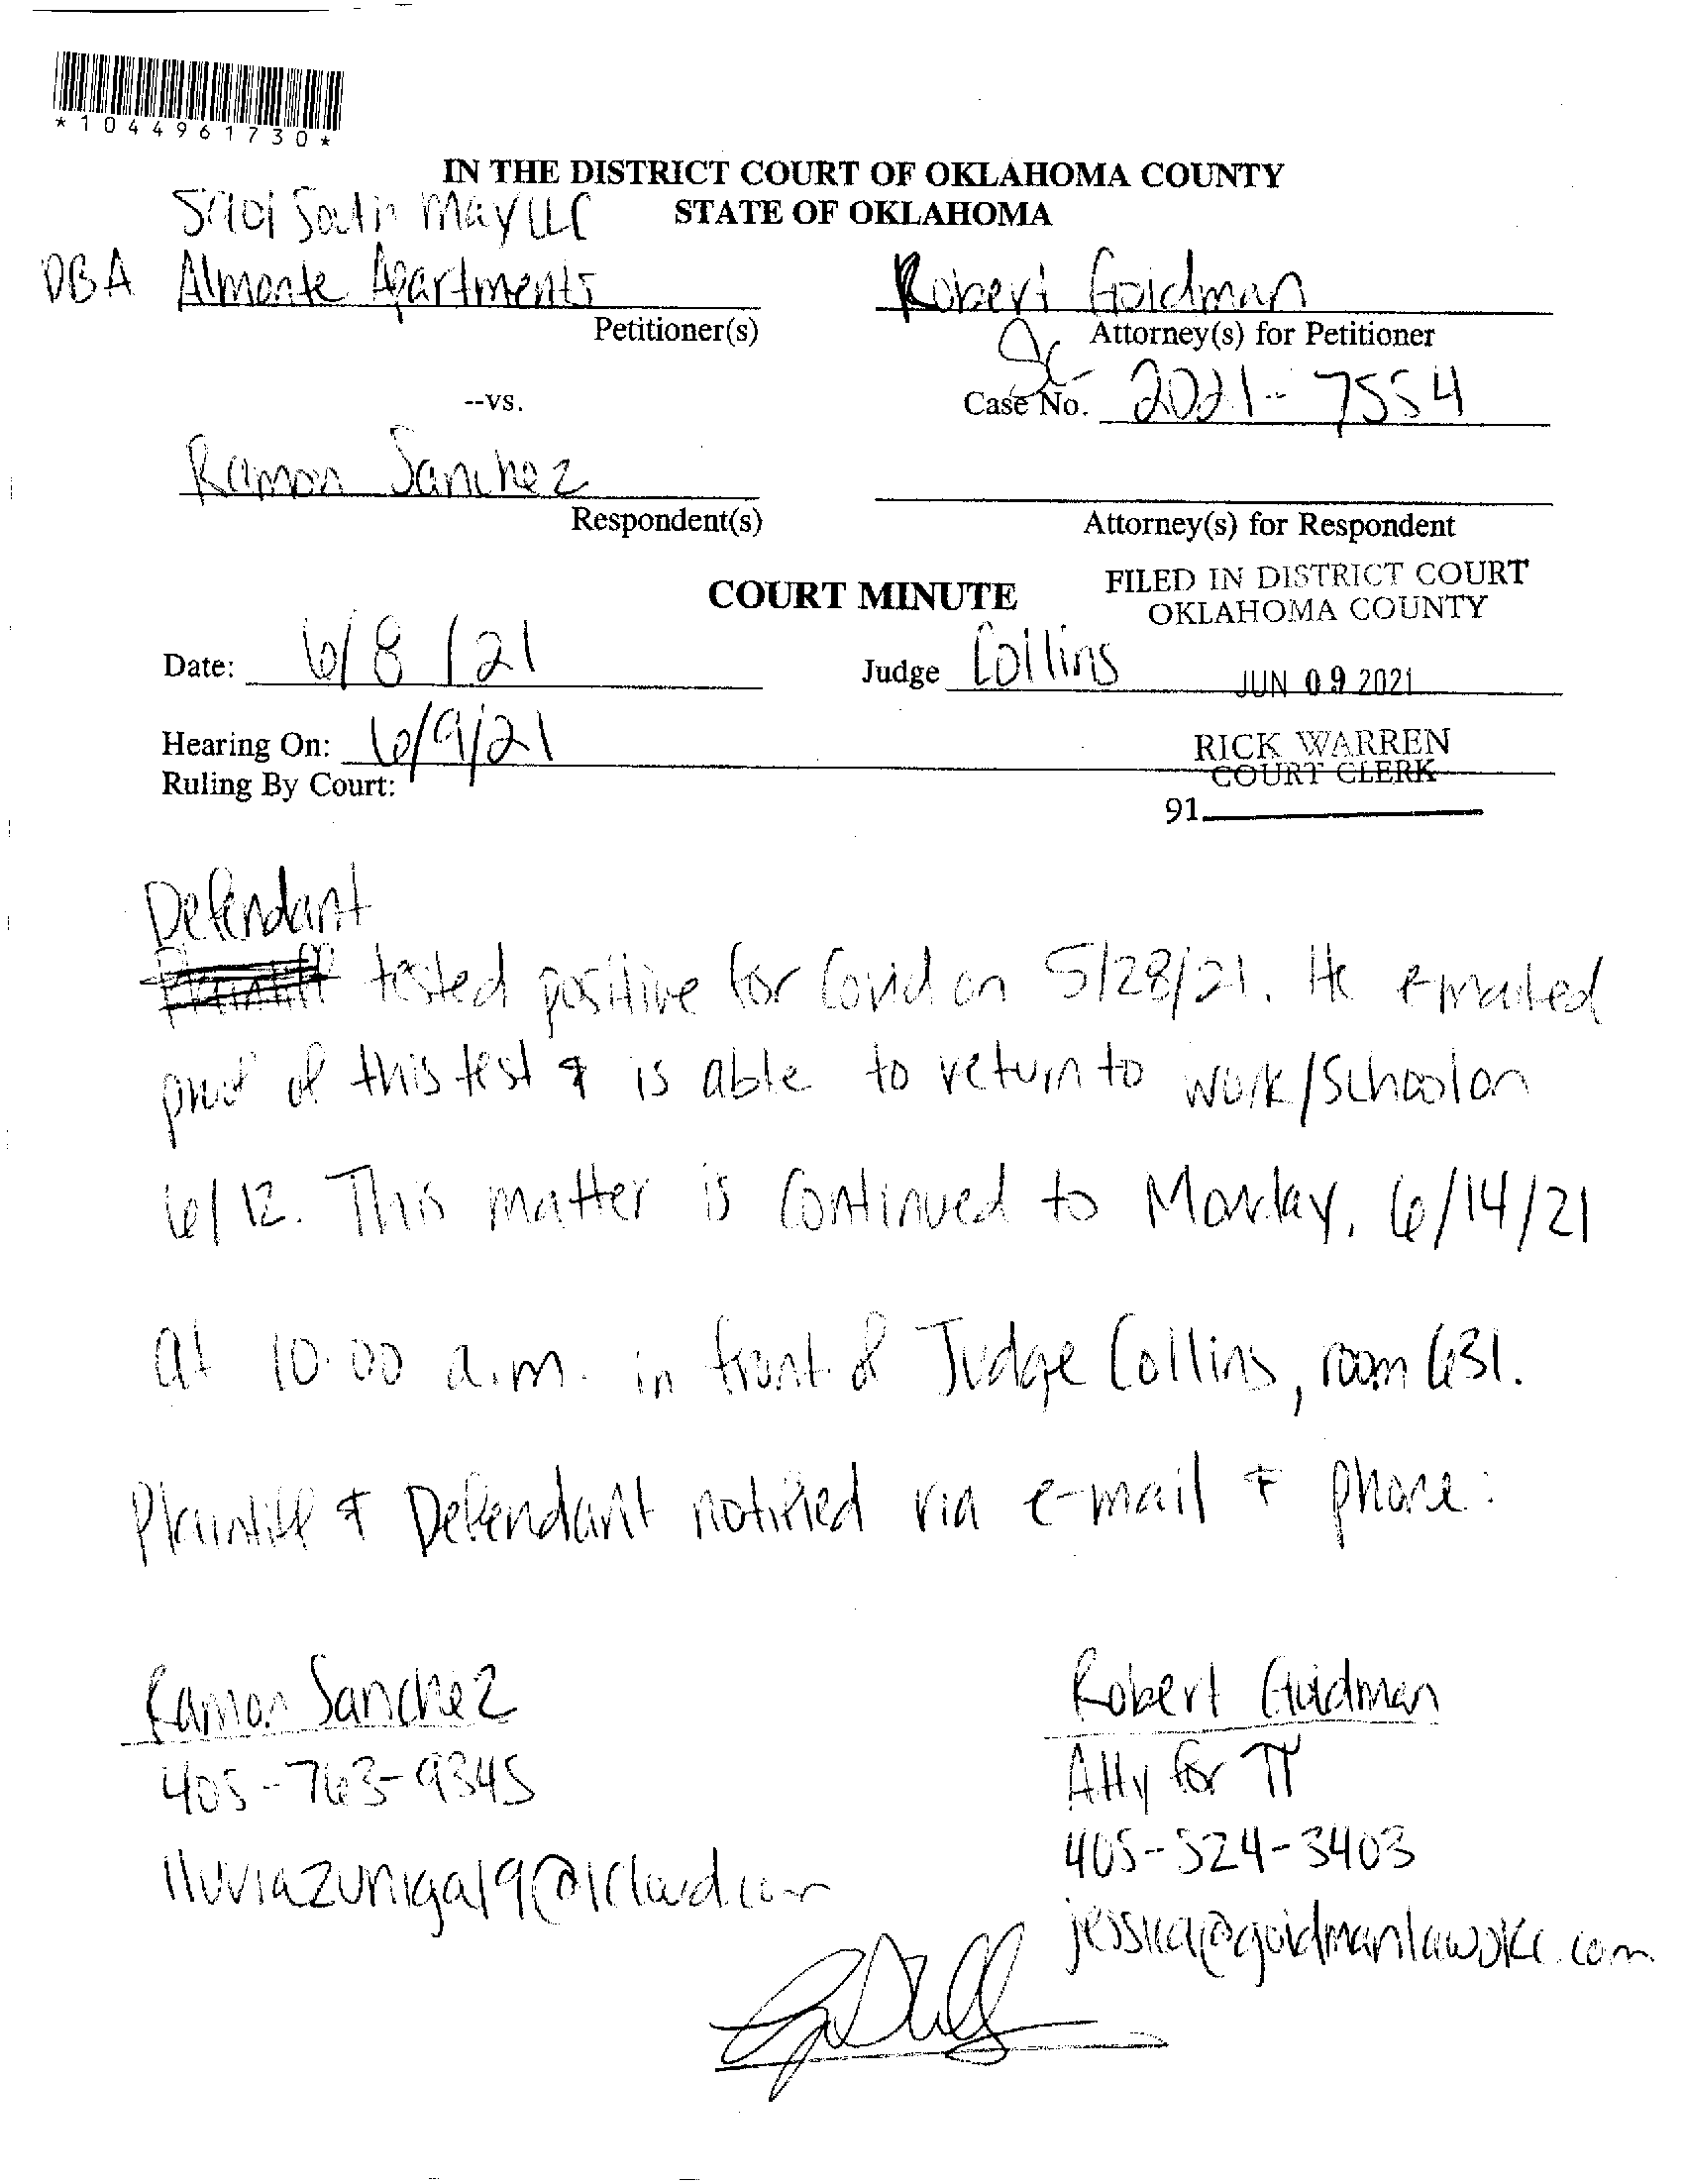 *1044961730*
IN THE DISTRICT COURT OF OKLAHOMA COUNTY
STATE OF OKLAHOMA
5901 South May LLC
DBA Almonte Apartments
Petitioner(s)
Robert Goldman
Attorney(s) for Petitioner
--vs.
SC-
Case No. 2021-7554
Ramon Sanchez
Respondent(s)
Attorney(s) for Respondent
COURT MINUTE
FILED IN DISTRICT COURT
OKLAHOMA COUNTY
Date: 6/8/21
Judge Collins
JUN 09 2021
Hearing On: 6/9/21
RICK WARREN
COURT CLERK
Ruling By Court:
91
Defendant
Plaintiff tested positive for Covid on 5/28/21. He emailed
proof of this test & is able to return to work/school on
6/12. This matter is continued to Monday, 6/14/21
at 10:00 a.m. in front of Judge Collins, room 631.
Plaintiff & Defendant notified via e-mail & phone:
Ramon Sanchez
405-763-9345
lluviazuniga19@icloud.com
Robert Goldman
Atty for π
405-524-3403
jessica@goldmanlawokc.com